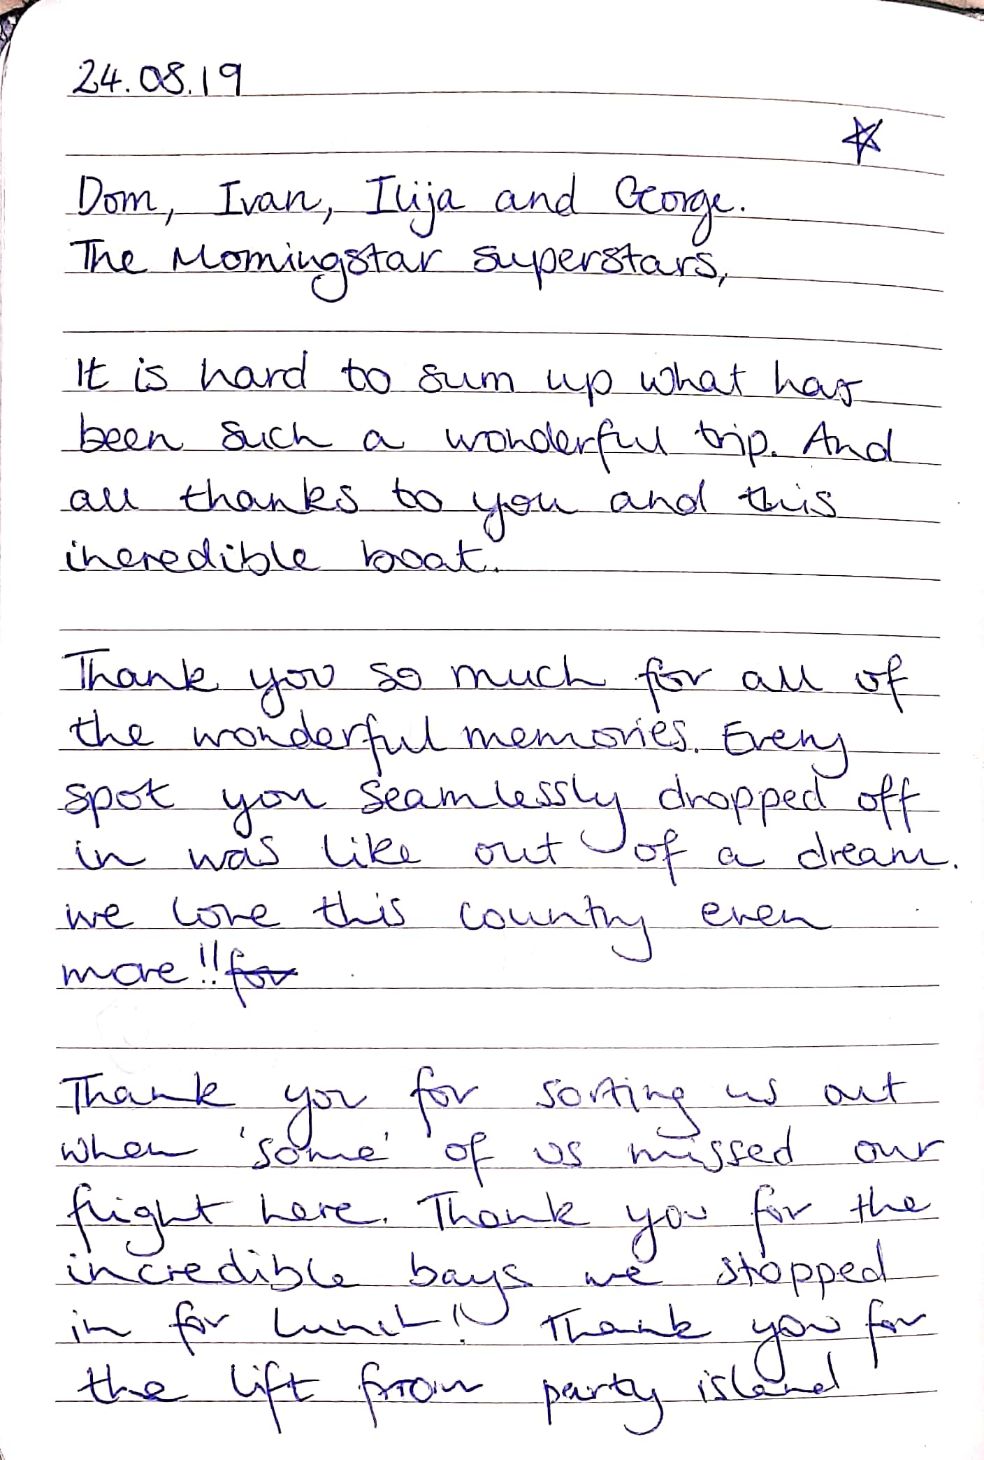 24.08.19
Dom, Ivan, Ilija and George.
The Morningstar superstars,
It is hard to sum up what has
been such a wonderful trip. And
all thanks to you and this
incredible boat.
Thank you so much for all of
the wonderful memories. Every
spot you seamlessly dropped off
in was like out of a dream.
we love this country even
more!! for
Thank you for sorting us out
when 'some' of us missed our
flight here. Thank you for the
incredible bays we stopped
in for lunch!! Thank you for
the lift from party island